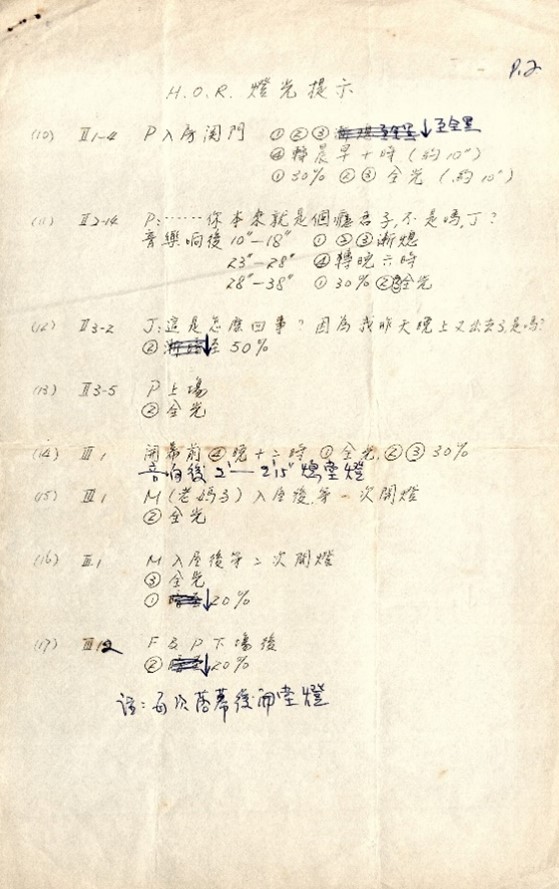 P.2
H.O.R. 燈光提示
(10) Ⅱ1-4 P入房関門 ①②③ ↓至全黑
④轉晨早十時(約10")
①30% ②③全光(約10")
(11) Ⅱ2-14 P:……你本來就是個癮君子,不是嗎,丁?
音樂响後10"-18" ①②③漸熄
23"-28" ④轉晚六時
28"-38" ①30% ②③全光
(12) Ⅱ3-2 J:這是怎麼回事?因為我昨天晚上又出去了是嗎?
② ↓50%
(13) Ⅱ3-5 P上場
②全光
(14) Ⅲ1 開幕前④晚十二時,①全光,②③30%
音响後2'—2'15"熄堂燈
(15) Ⅲ1 M(老媽子)入屋後第一次開燈
②全光
(16) Ⅲ1 M入屋後第二次開燈
③全光
① ↓20%
(17) Ⅲ2 F及P下場後
② ↓20%
註:每次落幕後開堂燈